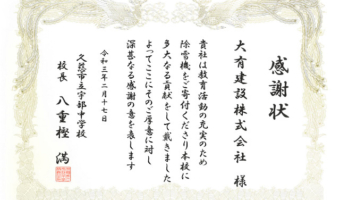 感謝状
大有建設株式会社 様
貴社は教育活動の充実のため
除雪機をご寄付くださり本校に
多大なる貢献をして戴きました
よってここにそのご厚意に対し
深甚なる感謝の意を表します
令和三年二月十七日
久慈市立宇部中学校
校長 八重樫 満